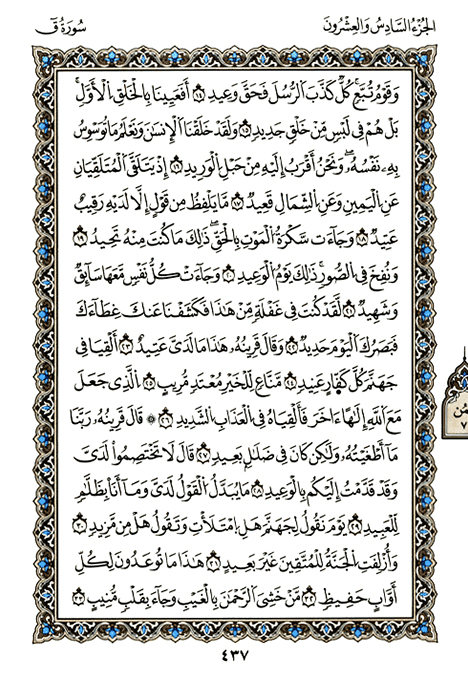 الجُزْءُ السَّادِسُ وَالعِشْرُونَ
سُورَةُ قٓ
وَقَوْمُ تُبَّعٍۚ كُلٌّ كَذَّبَ اَلرُّسُلَ فَحَقَّ وَعِيدِ ١٤ أَفَعَيِينَا بِالْخَلْقِ اِلْأَوَّلِۚ
بَلْ هُمْ فِي لَبْسٍ مِّنْ خَلْقٍ جَدِيدٍ ١٥ وَلَقَدْ خَلَقْنَا اَلْإِنسَٰنَ وَنَعْلَمُ مَا تُوَسْوِسُ
بِهِۦ نَفْسُهُۥۖ وَنَحْنُ أَقْرَبُ إِلَيْهِ مِنْ حَبْلِ اِلْوَرِيدِ ١٦ إِذْ يَتَلَقَّى اَلْمُتَلَقِّيَانِ
عَنِ اِلْيَمِينِ وَعَنِ اِلشِّمَالِ قَعِيدٌ ١٧ مَّا يَلْفِظُ مِن قَوْلٍ إِلَّا لَدَيْهِ رَقِيبٌ
عَتِيدٌ ١٨ وَجَآءَت سَّكْرَةُ اُلْمَوْتِ بِالْحَقِّۖ ذَٰلِكَ مَا كُنتَ مِنْهُ تَحِيدُ ١٩
وَنُفِخَ فِي اِلصُّورِۚ ذَٰلِكَ يَوْمُ اُلْوَعِيدِ ٢٠ وَجَآءَت كُّلُّ نَفْسٍ مَّعَهَا سَآئِقٌ
وَشَهِيدٌ ٢١ لَّقَدْ كُنتَ فِي غَفْلَةٍ مِّنْ هَٰذَا فَكَشَفْنَا عَنكَ غِطَآءَكَ
فَبَصَرُكَ اَلْيَوْمَ حَدِيدٌ ٢٢ وَقَالَ قَرِينُهُۥ هَٰذَا مَا لَدَيَّ عَتِيدٌ ٢٣ أَلْقِيَا فِي
جَهَنَّمَ كُلَّ كَفَّارٍ عَنِيدٍ ٢٤ مَّنَّاعٍ لِّلْخَيْرِ مُعْتَدٍ مُّرِيبٍ ٢٥ اِلَّذِي جَعَلَ
مَعَ اَللَّهِ إِلَٰهًا ءَاخَرَ فَأَلْقِيَاهُ فِي اِلْعَذَابِ اِلشَّدِيدِ ٢٦ ۞ قَالَ قَرِينُهُۥ رَبَّنَا
مَآ أَطْغَيْتُهُۥ وَلَٰكِن كَانَ فِي ضَلَٰلٍ بَعِيدٍ ٢٧ قَالَ لَا تَخْتَصِمُواْ لَدَيَّ
وَقَدْ قَدَّمْتُ إِلَيْكُم بِالْوَعِيدِ ٢٨ مَا يُبَدَّلُ اُلْقَوْلُ لَدَيَّ وَمَآ أَنَا۠ بِظَلَّٰمٍ
لِّلْعَبِيدِ ٢٩ يَوْمَ نَقُولُ لِجَهَنَّمَ هَلِ اِمْتَلَأْتِ وَتَقُولُ هَلْ مِن مَّزِيدٍ ٣٠
وَأُزْلِفَتِ اِلْجَنَّةُ لِلْمُتَّقِينَ غَيْرَ بَعِيدٍ ٣١ هَٰذَا مَا تُوعَدُونَ لِكُلِّ
أَوَّابٍ حَفِيظٍ ٣٢ مَّنْ خَشِيَ اَلرَّحْمَٰنَ بِالْغَيْبِ وَجَآءَ بِقَلْبٍ مُّنِيبٍ ٣٣
٤٣٧